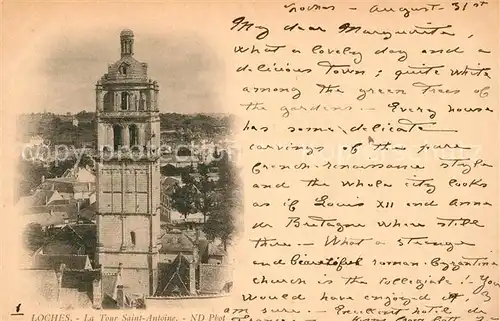 Loches - August 31st
My dear Marguerite,
what a lovely day and a
delicious town; quite white
among the green trees of
the gardens - Every house
has some delicate
carvings of the pure
french-renaissance style
and the whole city looks
as if Louis XII and Anna
de Bretagne where still
there - What a strange
and beautiful roman-Byzantine
church is the collegiale! You
would have enjoyed it, I
am sure. - Excellent hotel de
LOCHES. - La Tour Saint-Antoine. - ND Phot